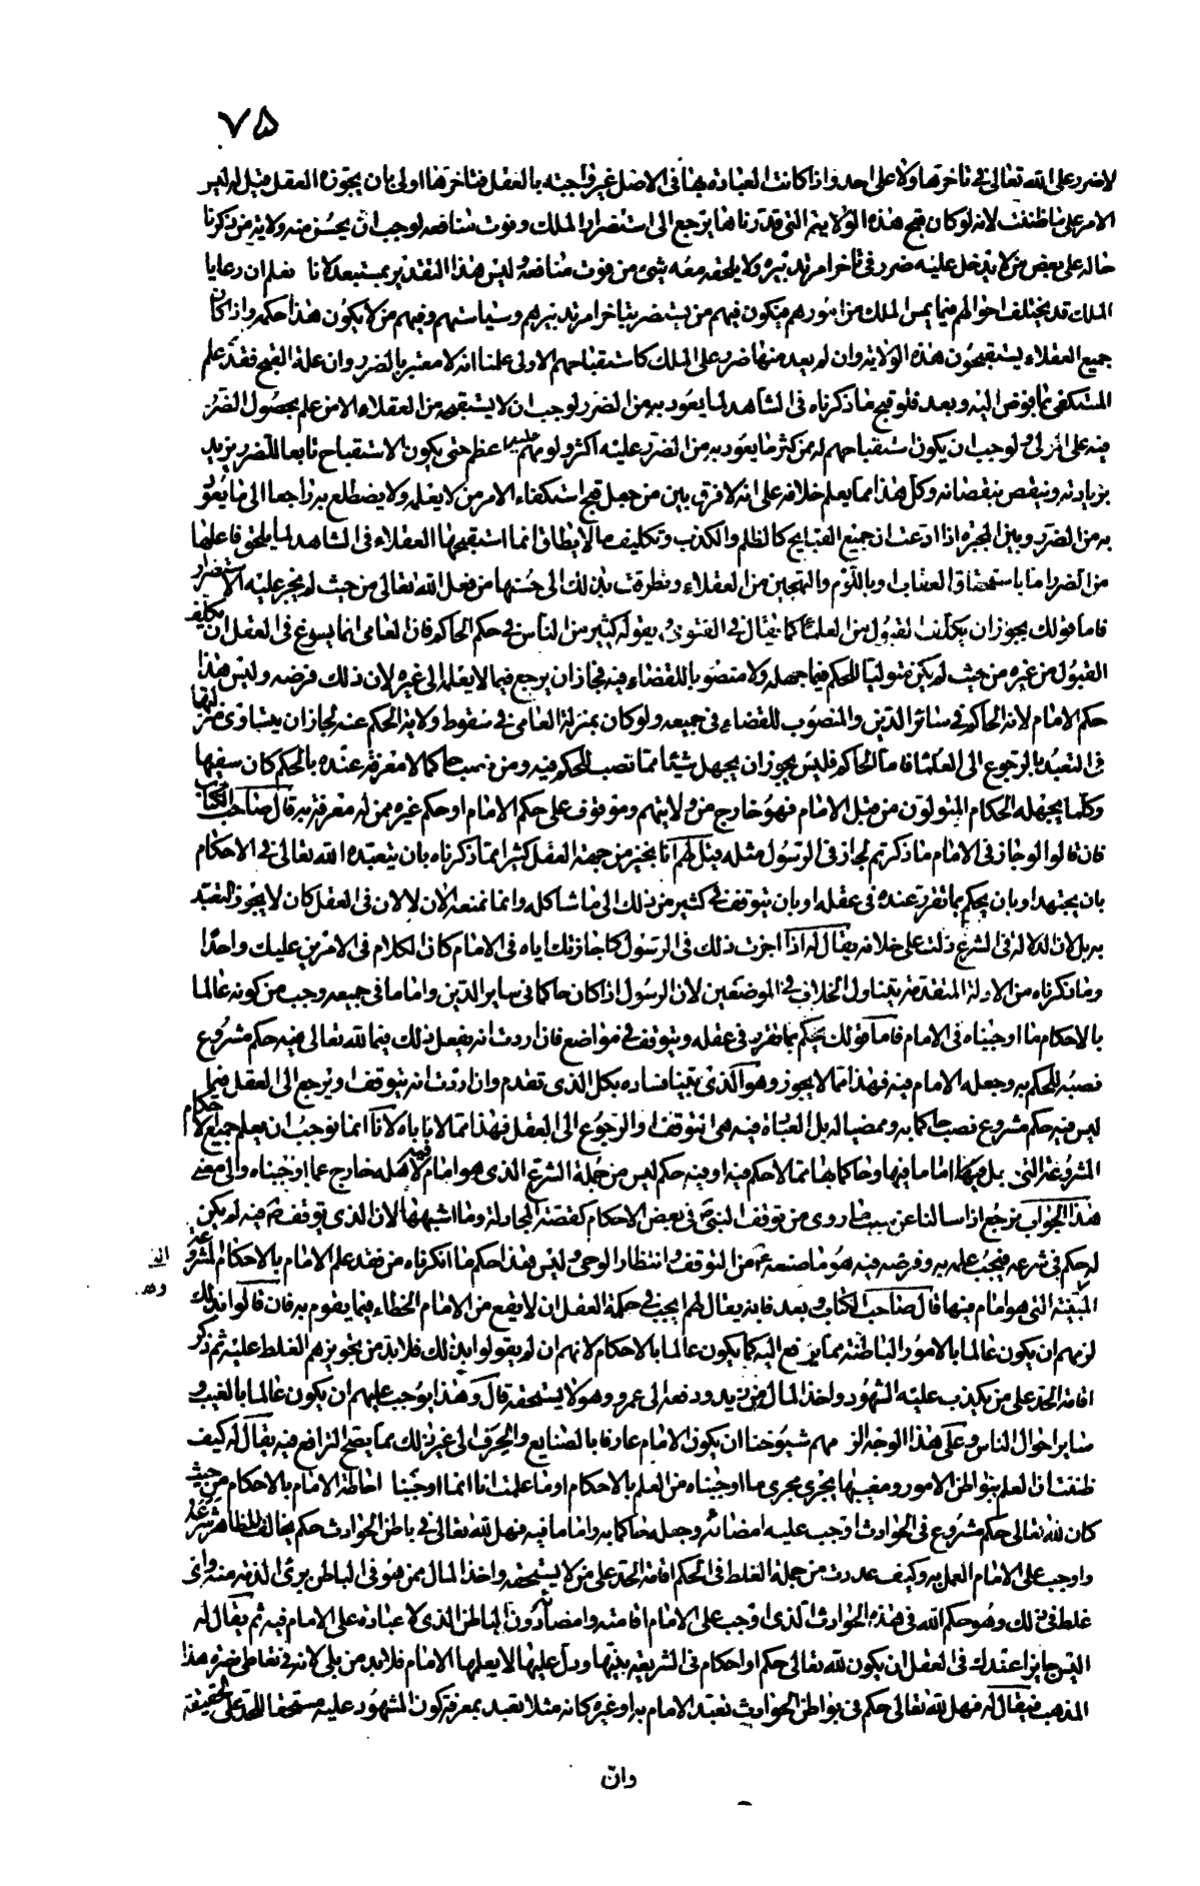 ٧٥
لاضرر على الله تعالى في تاخرها ولا على احد واذا كانت العبادة بها فى الاصل غير واجبة بالعقل فتاخرها اولى بان يجوزه العقل قيل له ليس
الامر على ما ظننت لانه لو كان قبح هذه الولاية التي قدرناها يرجع الى استضرار الملك وفوت منافعه لوجب ان يحسن منه ولاية من ذكرنا
حاله على بعض من لا يدخل عليه ضرر فى تاخر امر تدبيره ولا يلحقه معه شئ من فوت منافعه وليس هذا التقدير بمستبعد لانا نعلم ان رعايا
الملك قد يختلف احوالهم فيما يمس الملك من امورهم فيكون فيهم من يستضر بتاخر امر تدبيرهم وسياستهم وفيهم من لا يكون هذا حكمه واذا كان
جميع العقلاء يستقبحون هذه الولاية وان لم يعد منها ضرر على الملك كاستقباحهم الاولى علمنا انه لا معتبر بالضرر وان علة القبح فقد علم
المستكفى بما يفوض اليه وبعد فلو قبح ما ذكرناه فى الشاهد لما يعود به من الضرر لوجب ان لا يستقبحه من العقلاء الا من علم بحصول الضرر
فيه على لوجب ان يكون استقباحهم له ممن كثر ما يعود به من الضرر عليه اكثر ولومهم عليه اعظم حتى يكون الاستقباح تابعا للضرر يزيد
بزيادته وينقص بنقصانه وكل هذا مما يعلم خلافه على انه لا فرق بين من جعل قبح استكفاء الامر من لا يعلمه ولا يضطلع به راجعا الى ما يعود
به من الضرر وبين المجبرة اذا ادعت ان جميع القبايح كالظلم والكذب وتكليف ما لا يطاق انما استقبحها العقلاء فى الشاهد لما يلحق فاعلها
من الضرر اما باستحقاق العقاب او باللوم والتهجين من العقلاء وتطرقت بذلك الى حسنها من فعل الله تعالى من حيث لم يجز عليه الاستضرار
فاما قولك يجوز ان يكلف القبول من العلماء كما يقال في الفتوى ويقوله كثير من الناس في حكم الحاكم فان العامى انما يسوغ فى العقل ان يكلف
القبول من غيره من حيث لم يكن متوليا للحكم فيما جهله ولا منصوبا للقضاء فيه فجاز ان يرجع فيما لا يعلمه الى غيره لان ذلك فرضه وليس هذا
حكم الامام لانه الحاكم في سائر الدين والمنصوب للقضاء فى جميعه ولو كان بمنزلة العامى في سقوط ولاية الحكم عنه لجاز ان يتساوى فرضهما
فى التعبد بالرجوع الى العلماء فاما الحاكم فليس يجوز ان يجهل شيئا مما نصب للحكم فيه ومن نصب حاكما لا معرفة عنده بالحكم كان سفيها
وكلما يجهله الحكام المتولون من قبل الامام فهو خارج من ولايتهم وموقوف على حكم الامام او حكم غيره ممن له معرفة به قال صاحب الكتاب
فان قالوا لو جاز فى الامام ما ذكرتم لجاز فى الرسول مثله قيل لهم انا نجيز من جهة العقل كثيرا مما ذكرناه بان يتعبده الله تعالى في الاحكام
بان يجتهد او بان يحكم بما تقرر عنده فى عقله او بان يتوقف في كثير من ذلك الى ما شاكله وانما نمنعه الان لا لان فى العقل كان لا يجوز التعبد
به بل لان الدلالة فى الشرع دلت على خلافه يقال له اذا اجزت ذلك فى الرسول كاجازتك اياه فى الامام كان الكلام فى الامرين عليك واحدا
وما ذكرناه من الادلة المتقدمة يتناول الخلاف في الموضعين لان الرسول اذا كان حاكما فى ساير الدين واماما فى جميعه وجب من كونه عالما
بالاحكام ما اوجبناه فى الامام فاما قولك يحكم بما تقرر فى عقله ويتوقف في مواضع فان اردت انه يفعل ذلك فيما لله تعالى فيه حكم مشروع
نصبه للحكم به وجعله الامام فيه فهذا مما لا يجوز وهو الذى بينا فساده بكل الذى تقدم وان اردت انه يتوقف او يرجع الى العقل فيما
ليس فيه حكم مشروع نصب حاكما به وممضيا له بل العبادة فيه هى التوقف او الرجوع الى العقل فهذا مما لا ناباه لانا انما نوجب ان يعلم جميع الاحكام
المشروعة التي اماما فيها وحاكما بها فما لا حكم فيه او فيه حكم ليس من جملة الشرع الذى هو امام فيه لاهله خارج عما اوجبناه والى معنى
هذا الجواب نرجع اذا سالنا عن سبب ما روى من توقف النبي ص في بعض الاحكام كقصة المجادلة وما اشبهها لان الذى توقف ص فيه لم يكن
له حكم فى شرعه فيجب علمه به وفرضه فيه هو ما صنعه من التوقف وانتظار الوحى وليس هذا حكم ما انكرناه من فقد علم الامام بالاحكام المشروعة
المبينة التي هو امام فيها قال صاحب الكتاب وبعد فانه يقال لهم ايجب في حكمة العقل ان لا يقع من الامام الخطاء فيما يقوم به فان قالوا بذلك
لزمهم ان يكون عالما بالامور الباطنة مما يرفع اليه كما يكون عالما بالاحكام لانهم ان لم يقولوا بذلك فلا بد من تجويزهم الغلط عليه ثم ذكر
اقامة الحد على من يكذب عليه الشهود واخذ المال من زيد ودفعه الى عمرو وهو لا يستحقه قال وهذا يوجب عليهم ان يكون عالما بالغيب و
ساير احوال الناس وعلى هذا الوجه الزمهم شيوخنا ان يكون الامام عارفا بالصنايع والحرف الى غير ذلك مما يصح الترافع فيه يقال له كيف
ظننت ان العلم ببواطن الامور ومغيبها يجرى مجرى ما اوجبناه من العلم بالاحكام اوما علمت انا انما اوجبنا احاطة الامام بالاحكام من حيث
كان لله تعالى حكم مشروع فى الحوادث اوجب عليه امضائه وجعله حاكما به واماما فيه فهل لله تعالى في باطن الحوادث حكم يخالف الظاهر شرعه
واوجب على الامام العمل به وكيف عددت من جملة الغلط فى الحكم اقامة الحد على من لا يستحقه واخذ المال ممن هو فى الباطن برئ الذمة منه واى
غلط فى ذلك وهو حكم الله فى هذه الحوادث الذى اوجب على الامام اقامته وامضاؤه دون الباطن الذى لا عبادة على الامام فيه ثم يقال له
اليس جايزا عندك فى العقل ان يكون لله تعالى حكم او احكام فى الشريعة بينها ودل عليها لا يعلمها الامام فلا بد من بلى لانه في تعاطى نصرة هذا
المذهب فيقال له فهل لله تعالى حكم فى بواطن الحوادث تعبد الامام به او غيره كانه مثلا تعبد بمعرفة كون المشهود عليه مستحقا للحد على الحقيقة
وان